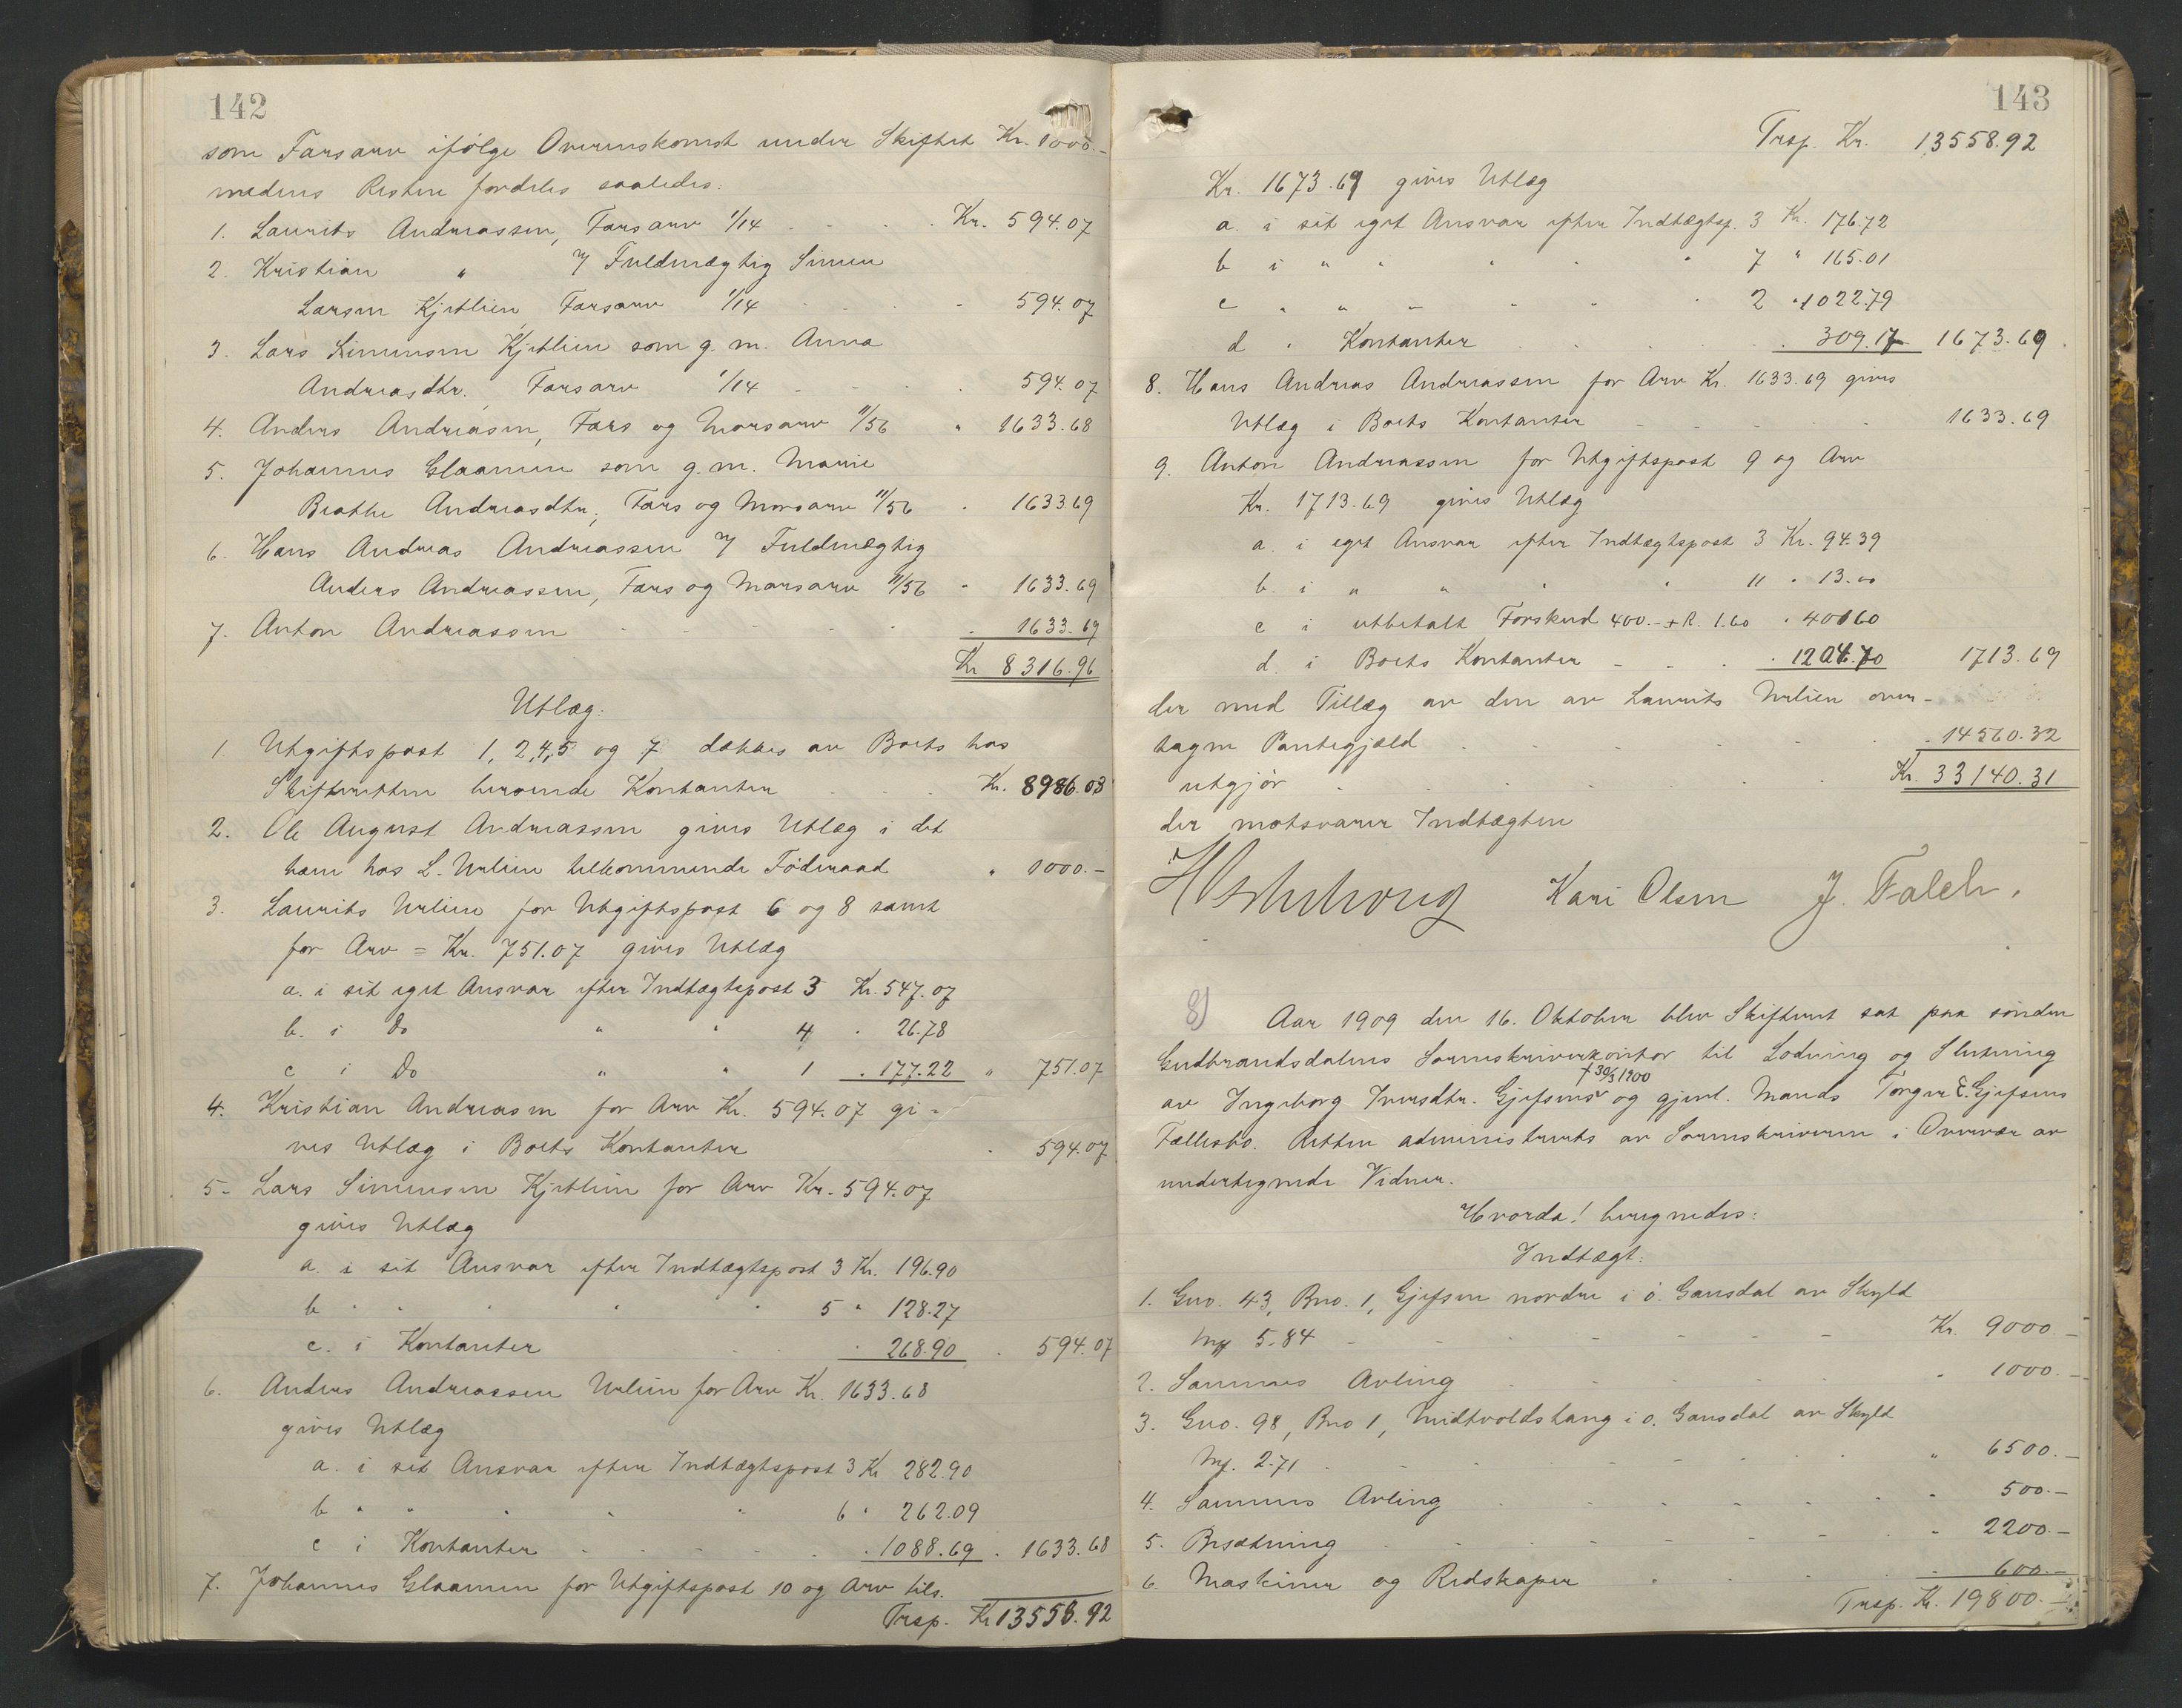 142
som Farsarv ifølge Overenskomst under Skiftet Kr. 1000.-
medens Resten fordeles saaledes:
1. Laurits Andreassen, Farsarv 1/14 Kr. 594.07
2. Kristian " v/ Fuldmægtig Simen
Larsen Kjetlien, Farsarv 1/14 - 594.07
3. Lars Simensen Kjetlien som g. m. Anna
Andreasdtr., Farsarv 1/14 - 594.07
4. Anders Andreasen, Fars og Morsarv 11/56 " 1633.68
5. Johannes Glaamen som g. m. Marie
Beathe Andreasdtr., Fars og Morsarv 11/56 . 1633.69
6. Hans Andreas Andreassen v/ Fuldmægtig
Anders Andreassen, Fars og Morsarv 11/56 " 1633.69
7. Anton Andreassen . 1633.69
Kr 8316.96
Utlæg:
1. Utgiftspost 1, 2, 4, 5 og 7 dækkes av Boets hos
Skifteretten beroende Kontanter Kr. 8986.03
2. Ole August Andreassen gives Utlæg i det
ham hos L. Urlien tilkommende Føderaad " 1000.-
3. Laurits Urlien for Utgiftspost 6 og 8 samt
for Arv = Kr. 751.07 gives Utlæg
a. i sit eget Ansvar efter Indtægtspost 3 Kr. 547.07
b. i Do " " 4 . 26.78
c i Do " " 1 . 177.22 " 751.07
4. Kristian Andreasen for Arv Kr. 594.07 gi-
ves Utlæg i Boets Kontanter . 594.07
5- Lars Simensen Kjetlien for Arv Kr. 594.07
gives Utlæg
a. i sit Ansvar efter Indtægtspost 3 Kr. 196.90
b " " " " " 5 " 128.27
c. i Kontanter . 268.90 . 594.07
6. Anders Andreassen Urlien for Arv Kr. 1633.68
gives Utlæg
a. i sit Ansvar efter Indtægtspost 3 Kr 282.90
b " " " " " 6 " 262.09
c i Kontanter . 1088.69 . 1633.68
7. Johannes Glaamen for Utgiftspost 10 og Arv tils.
Trsp. Kr 13558.92
143
Trsp. Kr. 13558.92
Kr. 1673.69 gives Utlæg
a. i sit eget Ansvar efter Indtægtsp. 3 Kr. 176.72
b i " " " " " 7 " 165.01
c " " " " " " 2 " 1022.79
d " Kontanter . 309.17 1673.69
8. Hans Andreas Andreassen for Arv Kr. 1633.69 gives
Utlæg i Boets Kontanter 1633.69
9. Anton Andreassen for Utgiftspost 9 og Arv
Kr. 1713.69 gives Utlæg
a. i eget Ansvar efter Indtægtspost 3 Kr. 94.39
b. i " " " " 11 " 13.00
c i utbetalt Forskud 400.- + R. 1.60 " 401.60
d. i Boets Kontanter - . 1204.70 1713.69
der med Tillæg av den av Laurits Urlien over-
tagne Pantegjæld . 14560.32
utgjør Kr. 33140.31
der motsvarer Indtægten
Kari Olsen J. Falch.
8) Aar 1909 den 16. Oktober blev Skifteret sat paa søndre
Gudbrandsdalens Sorenskriverkontor til Lodning og Slutning
† 30/3 1900
av Ingeborg Iversdtr. Gjefsens og gjenl. Mands Torger E. Gjefsens
Fællesbo. Retten administrerets av Sorenskriveren i Overvær av
undertegnede Vidner.
Hvorda! beregnedes:
Indtægt:
1. Gno. 43, Bno. 1, Gjefsen nordre i ø. Gausdal av Skyld
Mk 5.84 - Kr. 9000.-
2. Sammes Avling " 1000.-
3. Gno. 98, Bno 1, Midtvoldshaug i ø. Gausdal av Skyld
Mk. 2.71 " 6500.-
4. Sammes Avling " 500.-
5. Besætning " 2200.-
6. Maskiner og Redskaper " 600.-
Trsp. Kr. 19800.-